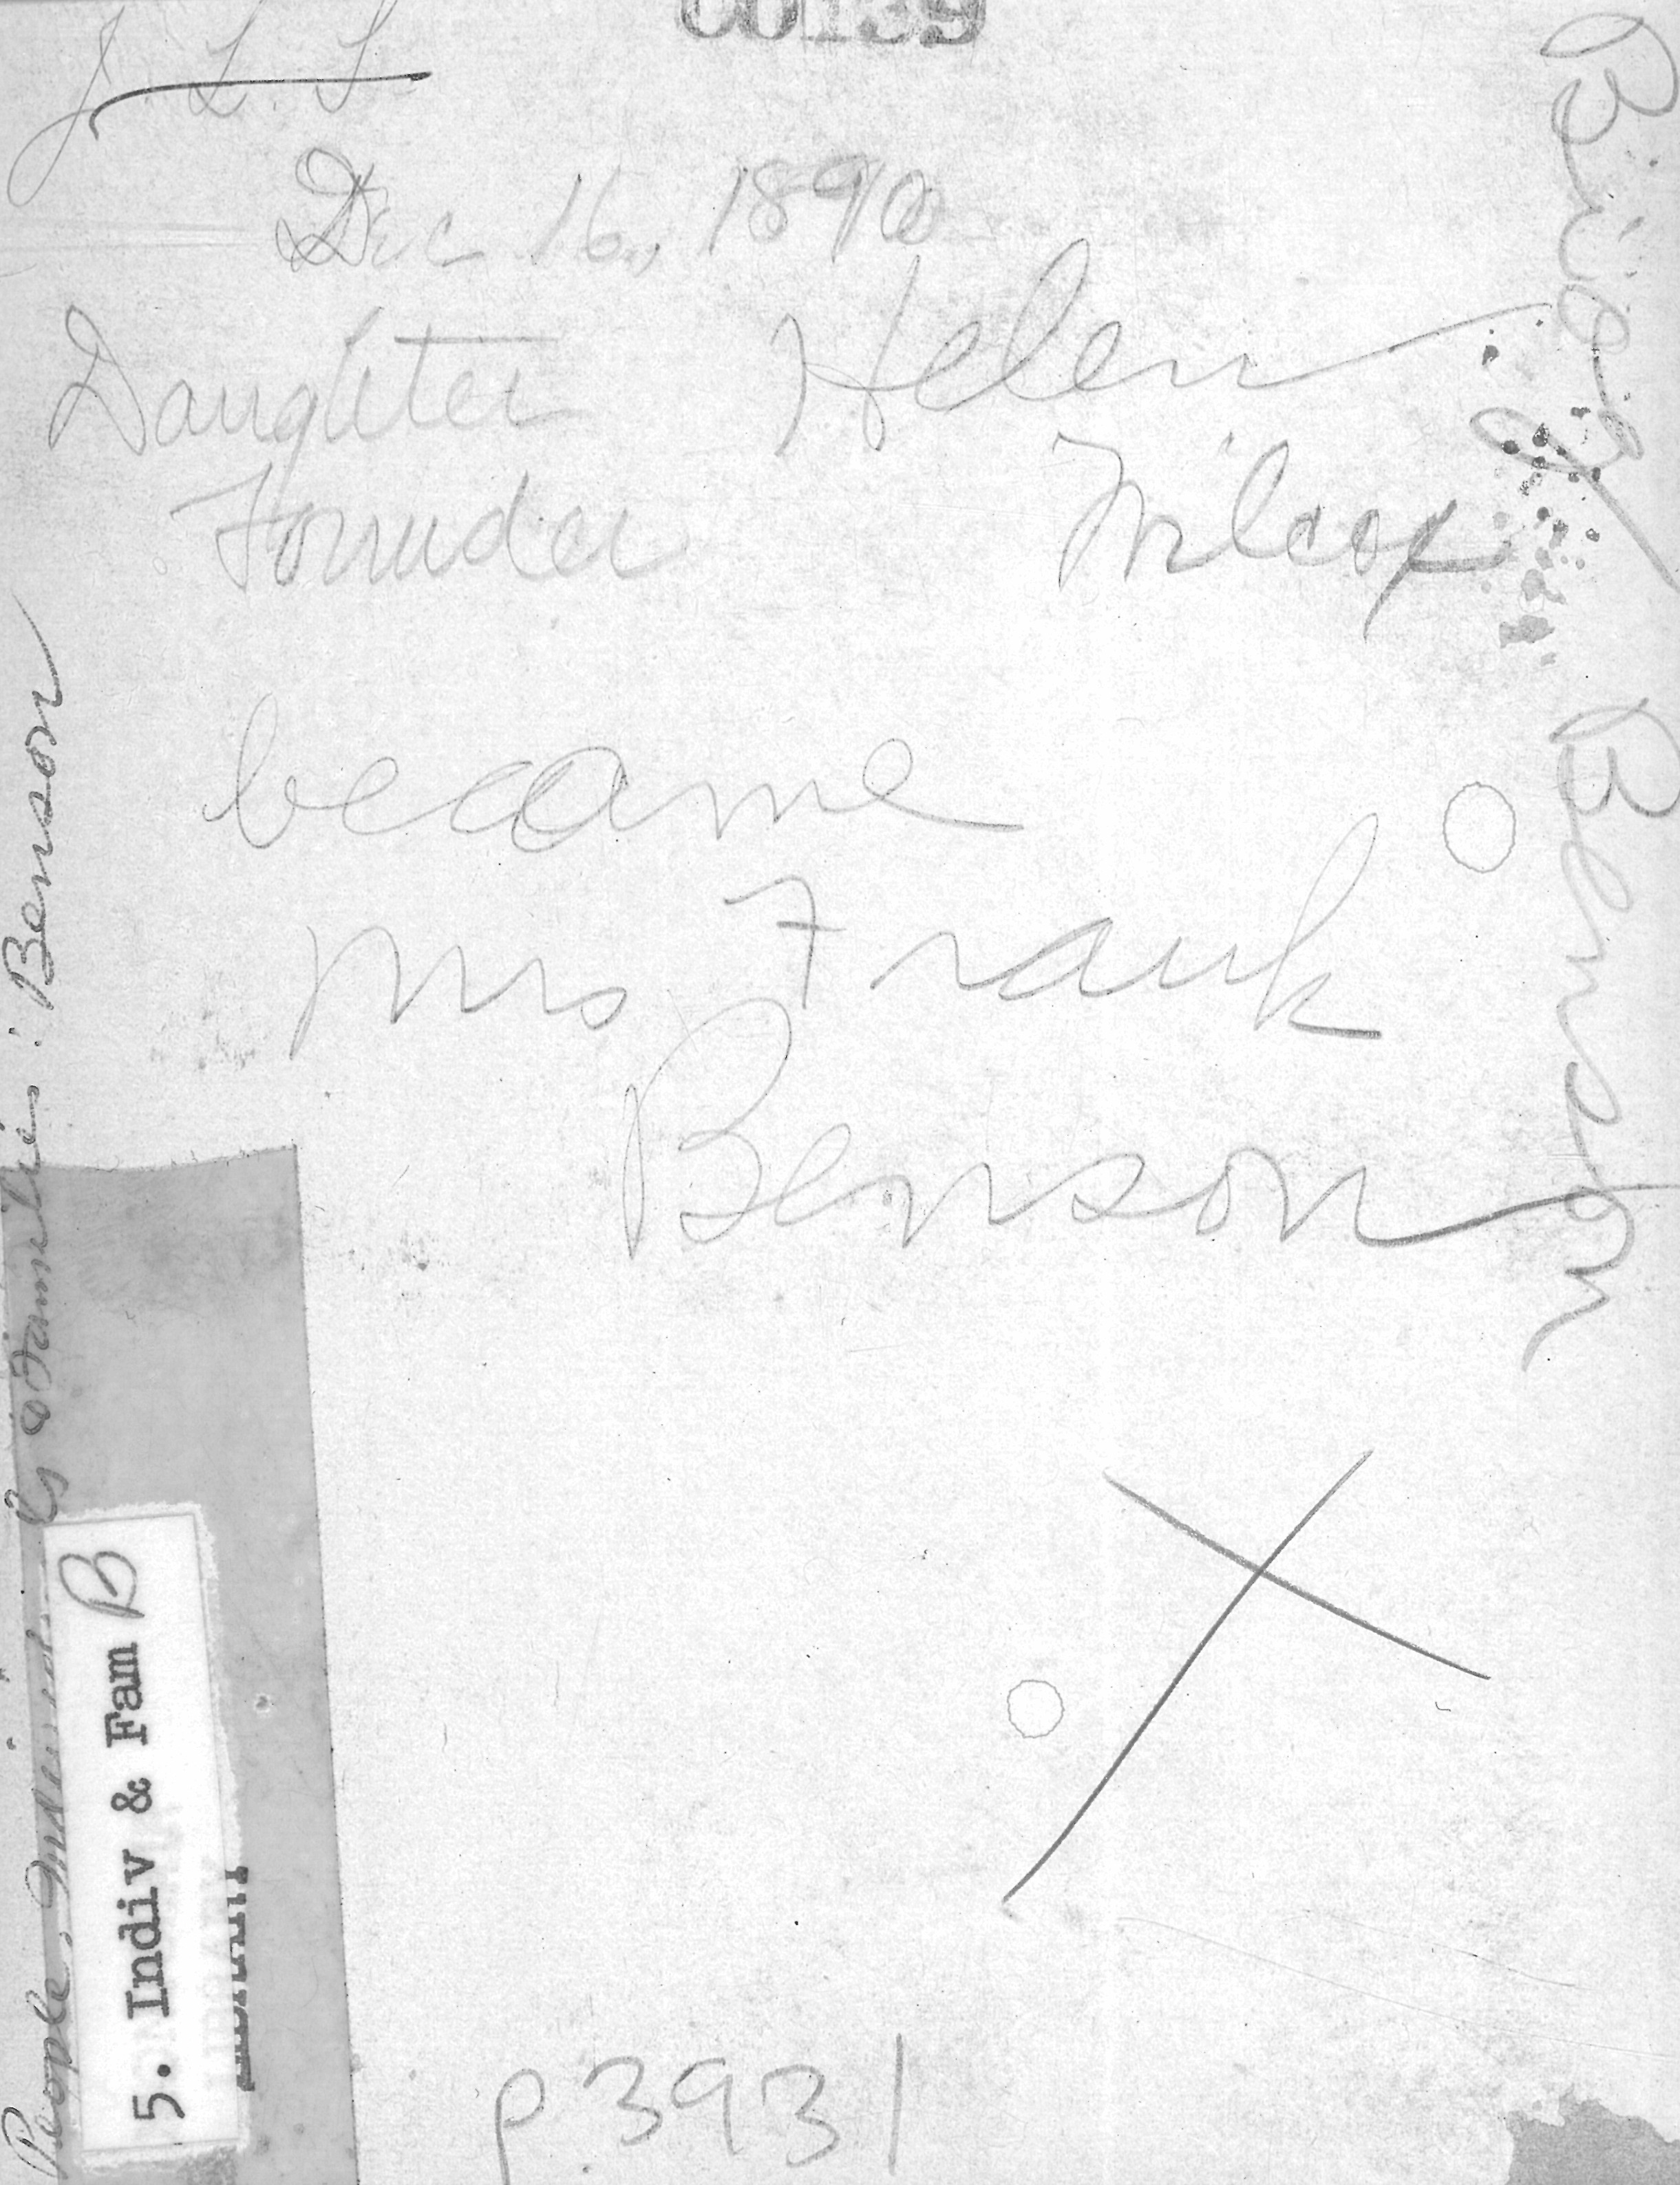 00139
J. L. S.
Dec 16, 1890
Daughter Helen
Founder Wilcox
became
Mrs Frank
Benson
Biog
Benson
People, Individuals & Families: Benson
5. Indiv & Fam B
LIBRARY
p.3931